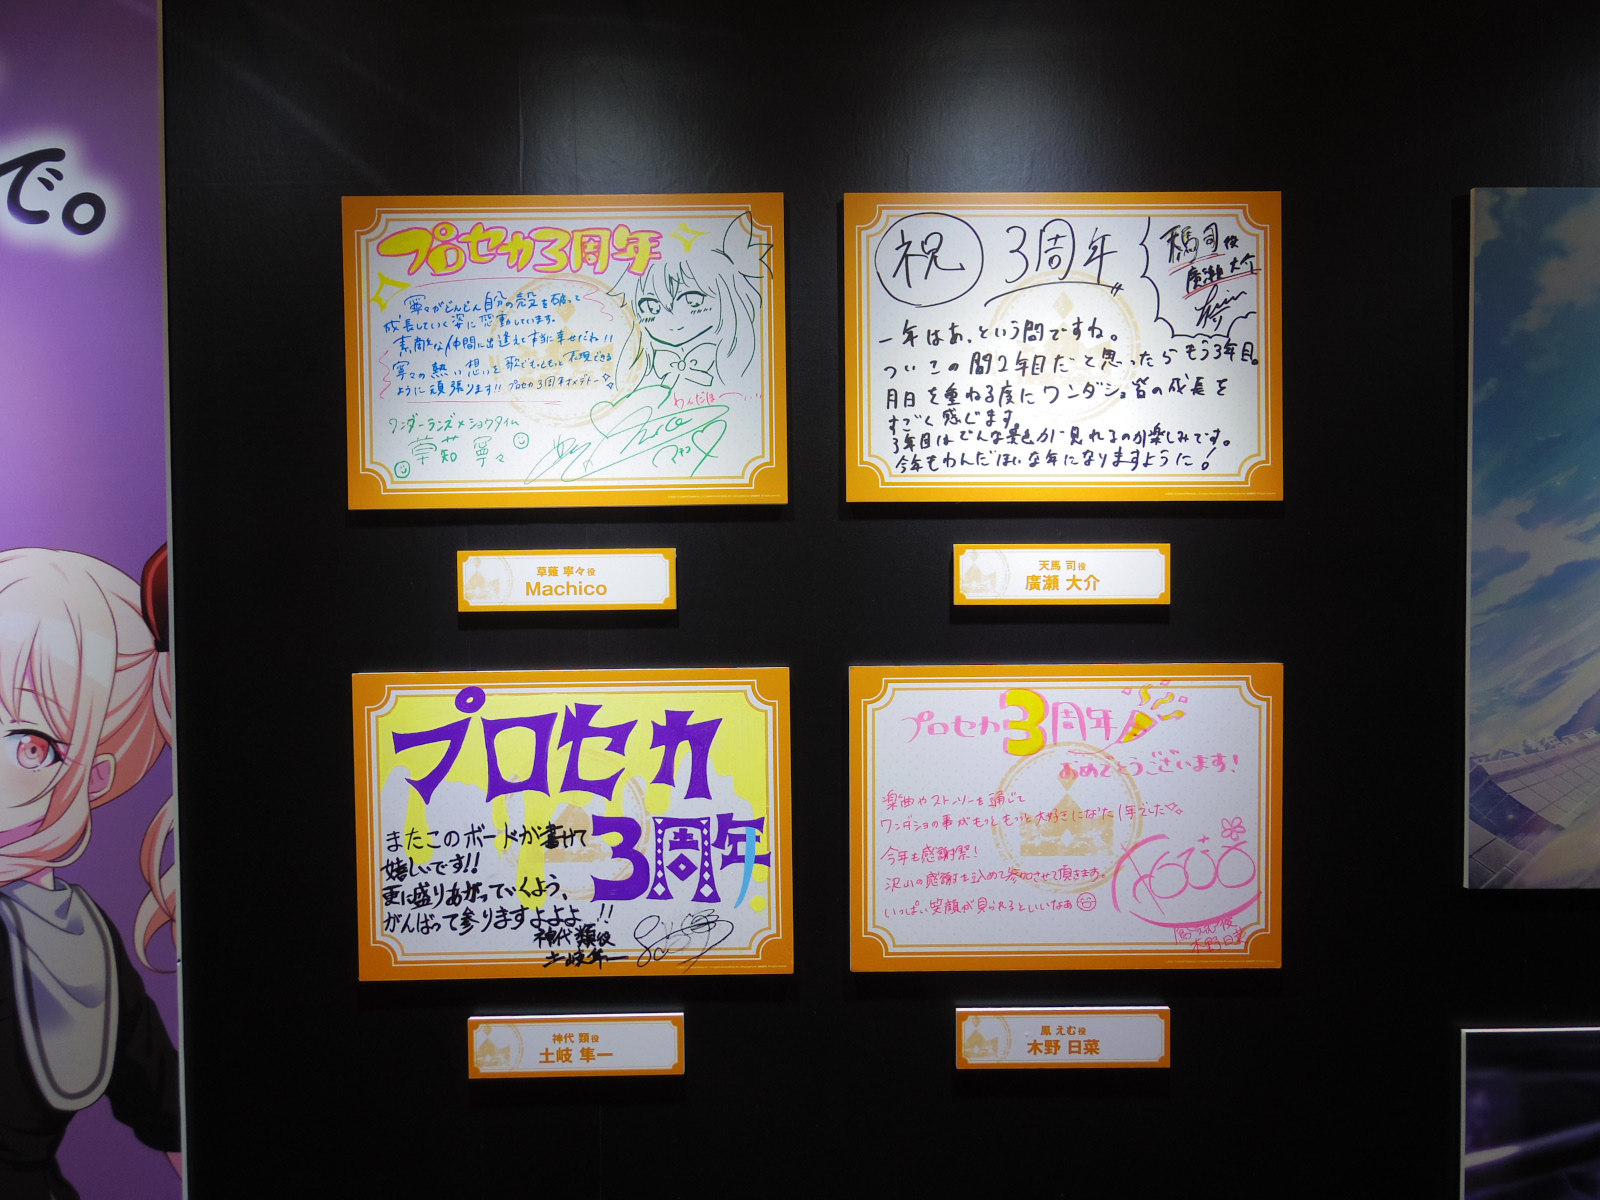 で。
プロセカ3周年
寧々がどんどん自分の殻を破って
成長していく姿に感動しています。
素敵な仲間に出逢えて本当に幸せだね!!
寧々の熱い想いを歌でもっともっと表現できる
ように頑張ります!! プロセカ3周年オメデトー
わんだほーい…
ワンダーランズ×ショウタイム
草薙 寧々
Machico
マチコ
草薙 寧々役
Machico
祝 3周年
天馬司役
廣瀬大介
一年はあっという間ですね。
ついこの間2年目だと思ったらもう3年目。
月日を重ねる度にワンダショ皆の成長を
すごく感じます。
3年目はどんな景色が見れるのか楽しみです。
今年もわんだほいな年になりますように!
天馬 司役
廣瀬 大介
プロセカ
3周年
またこのボードが書けて
嬉しいです!!
更に盛りあがっていくよう、
がんばって参りますよよよ!!
神代類役
土岐隼一
神代 類役
土岐 隼一
プロセカ3周年
おめでとうございます!
楽曲やストーリーを通じて
ワンダショの事がもっともっと大好きになった1年でした♡。
今年も感謝祭!
沢山の感謝を込めて参加させて頂きます。
いっぱい笑顔が見られるといいなぁ
鳳えむ役
木野日菜
鳳 えむ役
木野 日菜